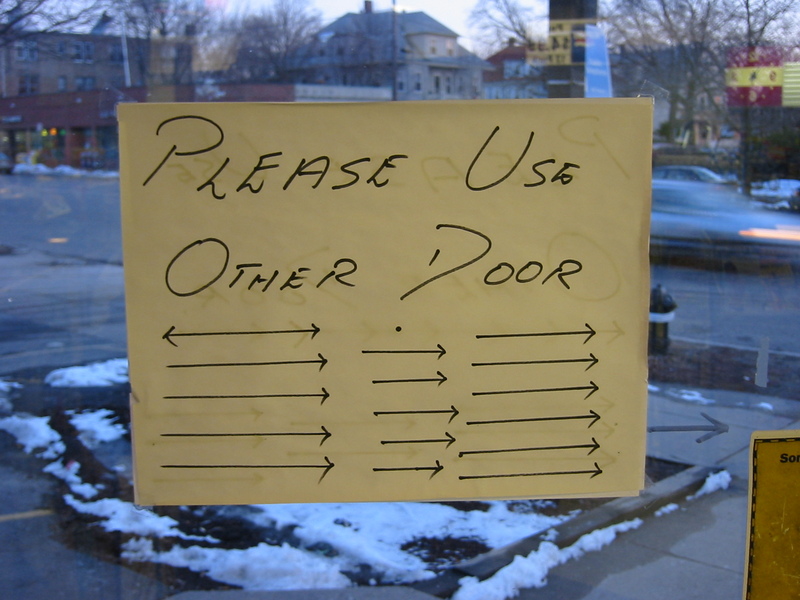 Please Use
Other Door